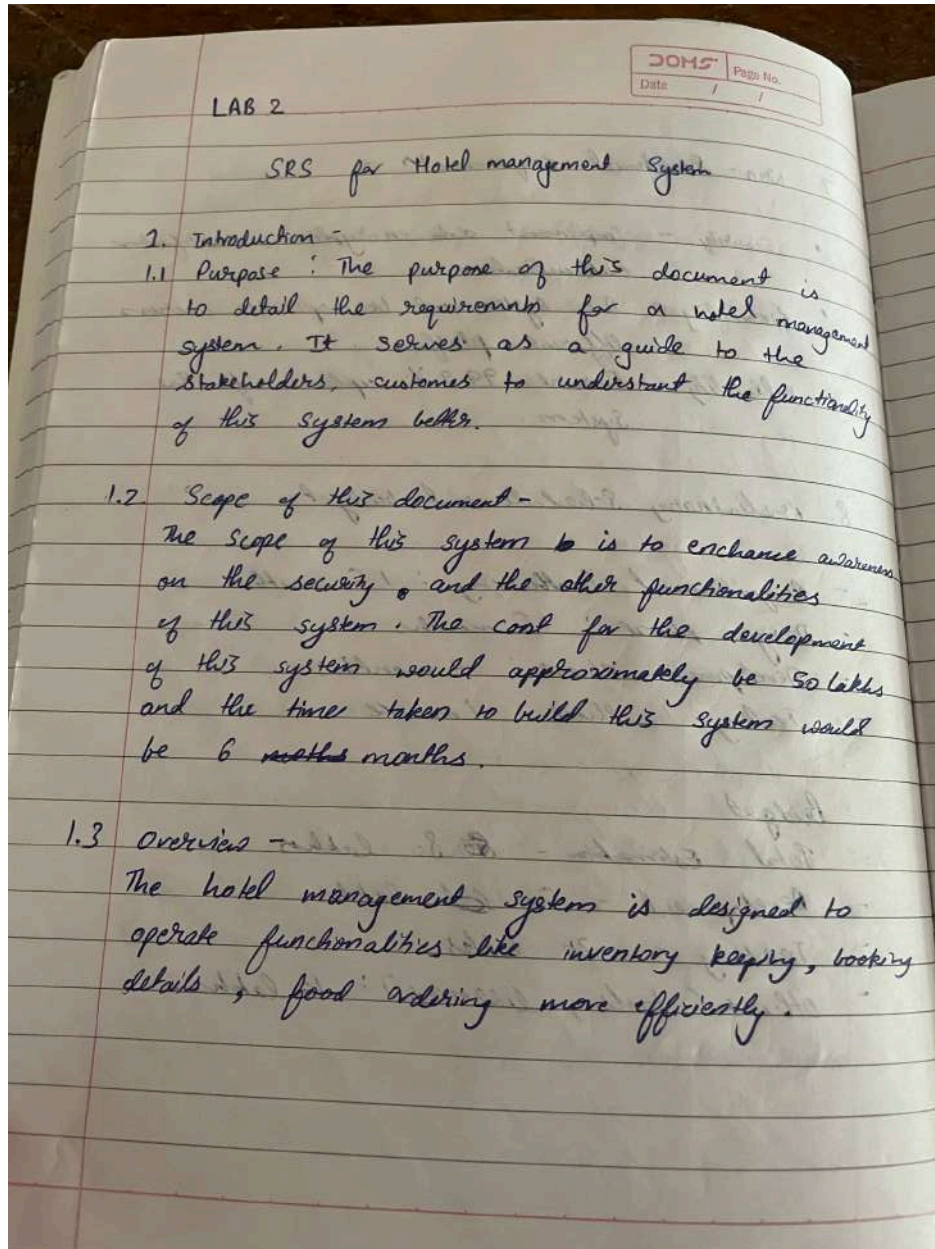 DOMS Page No.
Date / /
LAB 2
SRS for Hotel management System
1. Introduction -
1.1 Purpose : The purpose of this document is
to detail the requiremnts for a hotel management
system. It serves as a guide to the
stakeholders, customes to understant the functionality
of this system better.
1.2 Scope of this document -
The scope of this system is to enchance awareness
on the security and the other functionalities
of this system. The cost for the development
of this system would approximately be 50 lakhs
and the time taken to build this system would
be 6 months.
1.3 Overview -
The hotel management system is designed to
operate functionalities like inventory keeping, booking
details, food ordering more efficiently.